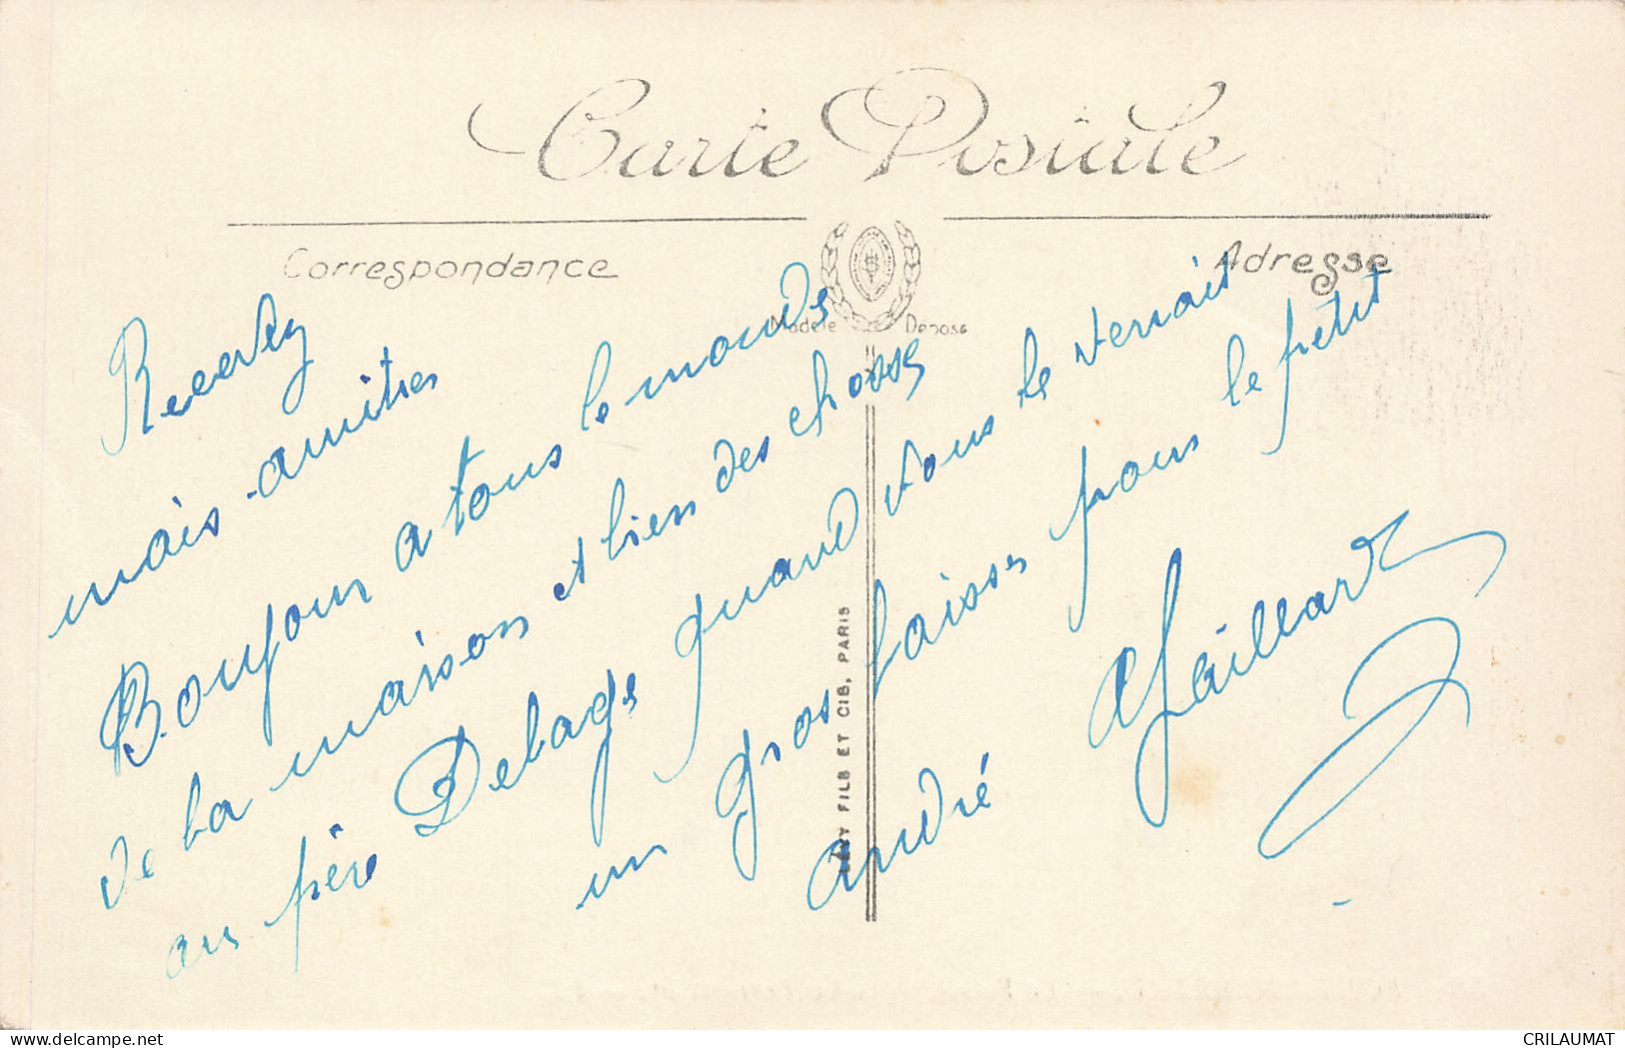 Carte Postale
Correspondance
Adresse
Modèle Déposé
LÉVY FILS ET CIE, PARIS
Recevez
mais amities
Bonjour a tous le monde
de la maison et bien des choses
au père Debage quand vous le verrait
un gros baisse pour le petit
André AGaillard
CRILAUMAT